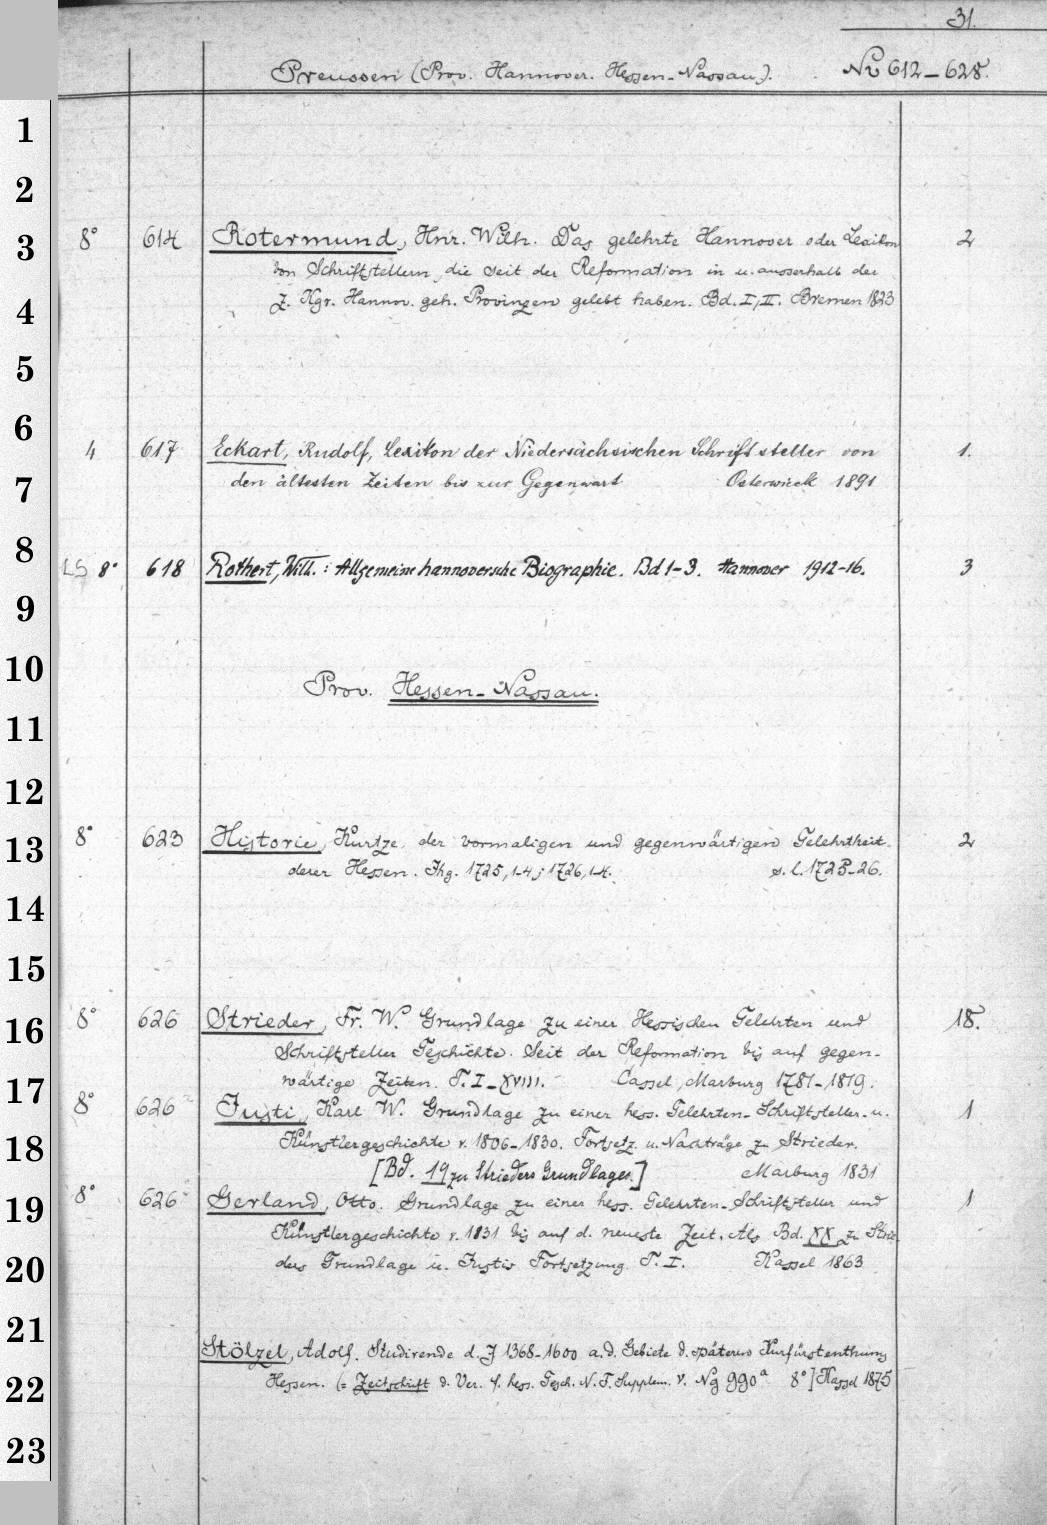 31.
Preussen (Prov. Hannover. Hessen-Nassau). No 612-628.
1
2
3 8° 614 Rotermund, Hnr. Wilh. Das gelehrte Hannover oder Lexikon 2
von Schriftstellern, die seit der Reformation in u. ausserhalb der
4 z. Kgr. Hannov. geh. Provinzen gelebt haben. Bd. I, II. Bremen 1823
5
6 4 617 Eckart, Rudolf, Lexikon der Niedersächsischen Schriftsteller von 1.
7 den ältesten Zeiten bis zur Gegenwart Osterwieck 1891
8 LS 8° 618 Rothert, Wilh.: Allgemeine hannoversche Biographie. Bd 1-3. Hannover 1912-16. 3
9
10 Prov. Hessen-Nassau.
11
12
13 8° 623 Historie, Kurtze, der vormaligen und gegenwärtigen Gelehrtheit 2
derer Hessen. Jhg. 1725, 1-4; 1726, 1-4. s. l. 1725-26.
14
15
16 8° 626 Strieder, Fr. W. Grundlage zu einer Hessischen Gelehrten und 18.
Schriftsteller Geschichte. Seit der Reformation bis auf gegen-
17 wärtige Zeiten. T. I-XVIII. Cassel, Marburg 1781-1819.
8° 626² Justi, Karl W. Grundlage zu einer hess. Gelehrten- Schriftsteller- u. 1
18 Künstlergeschichte v. 1806-1830. Fortsetz. u. Nachträge z. Strieder.
[Bd. 19 zu Strieders Grundlagen.] Marburg 1831
19 8° 626 Gerland, Otto. Grundlage zu einer hess. Gelehrten- Schriftsteller und 1
Künstlergeschichte v. 1831 bis auf d. neueste Zeit. Als Bd. XX zu Strie-
20 ders Grundlage u. Justis Fortsetzung. T. I. Kassel 1863
21 Stölzel, Adolf. Studirende d. J 1368-1600 a. d. Gebiete d. späteren Kurfürstenthums
22 Hessen. (= Zeitschrift d. Ver. f. hess. Gesch. N. F. Supplem. V. Ng 990ª 8°] Kassel 1875
23